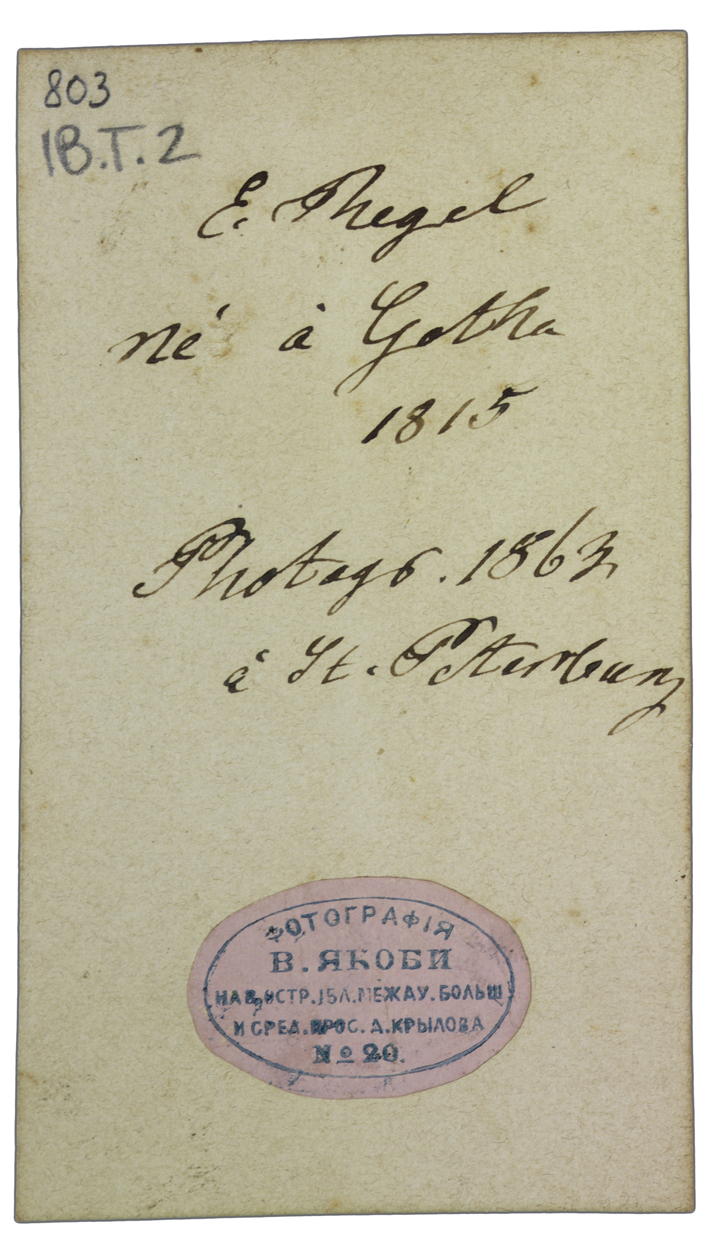 803
IB.T.2
E. Rhegel
né à Gotha
1815
Photogr. 1863
à St. Petersburg
ФОТОГРАФІЯ
В. ЯКОБИ
НА В. ОСТР. 1БЛ. МЕЖДУ. БОЛЬШ
И СРЕД. ПРОС. Д. КРЫЛОВА
№ 20.